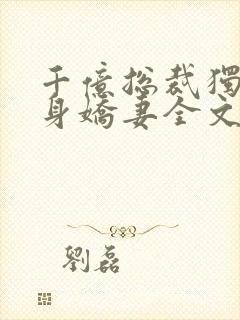 千億總裁獨
身嬌妻全文
劉磊